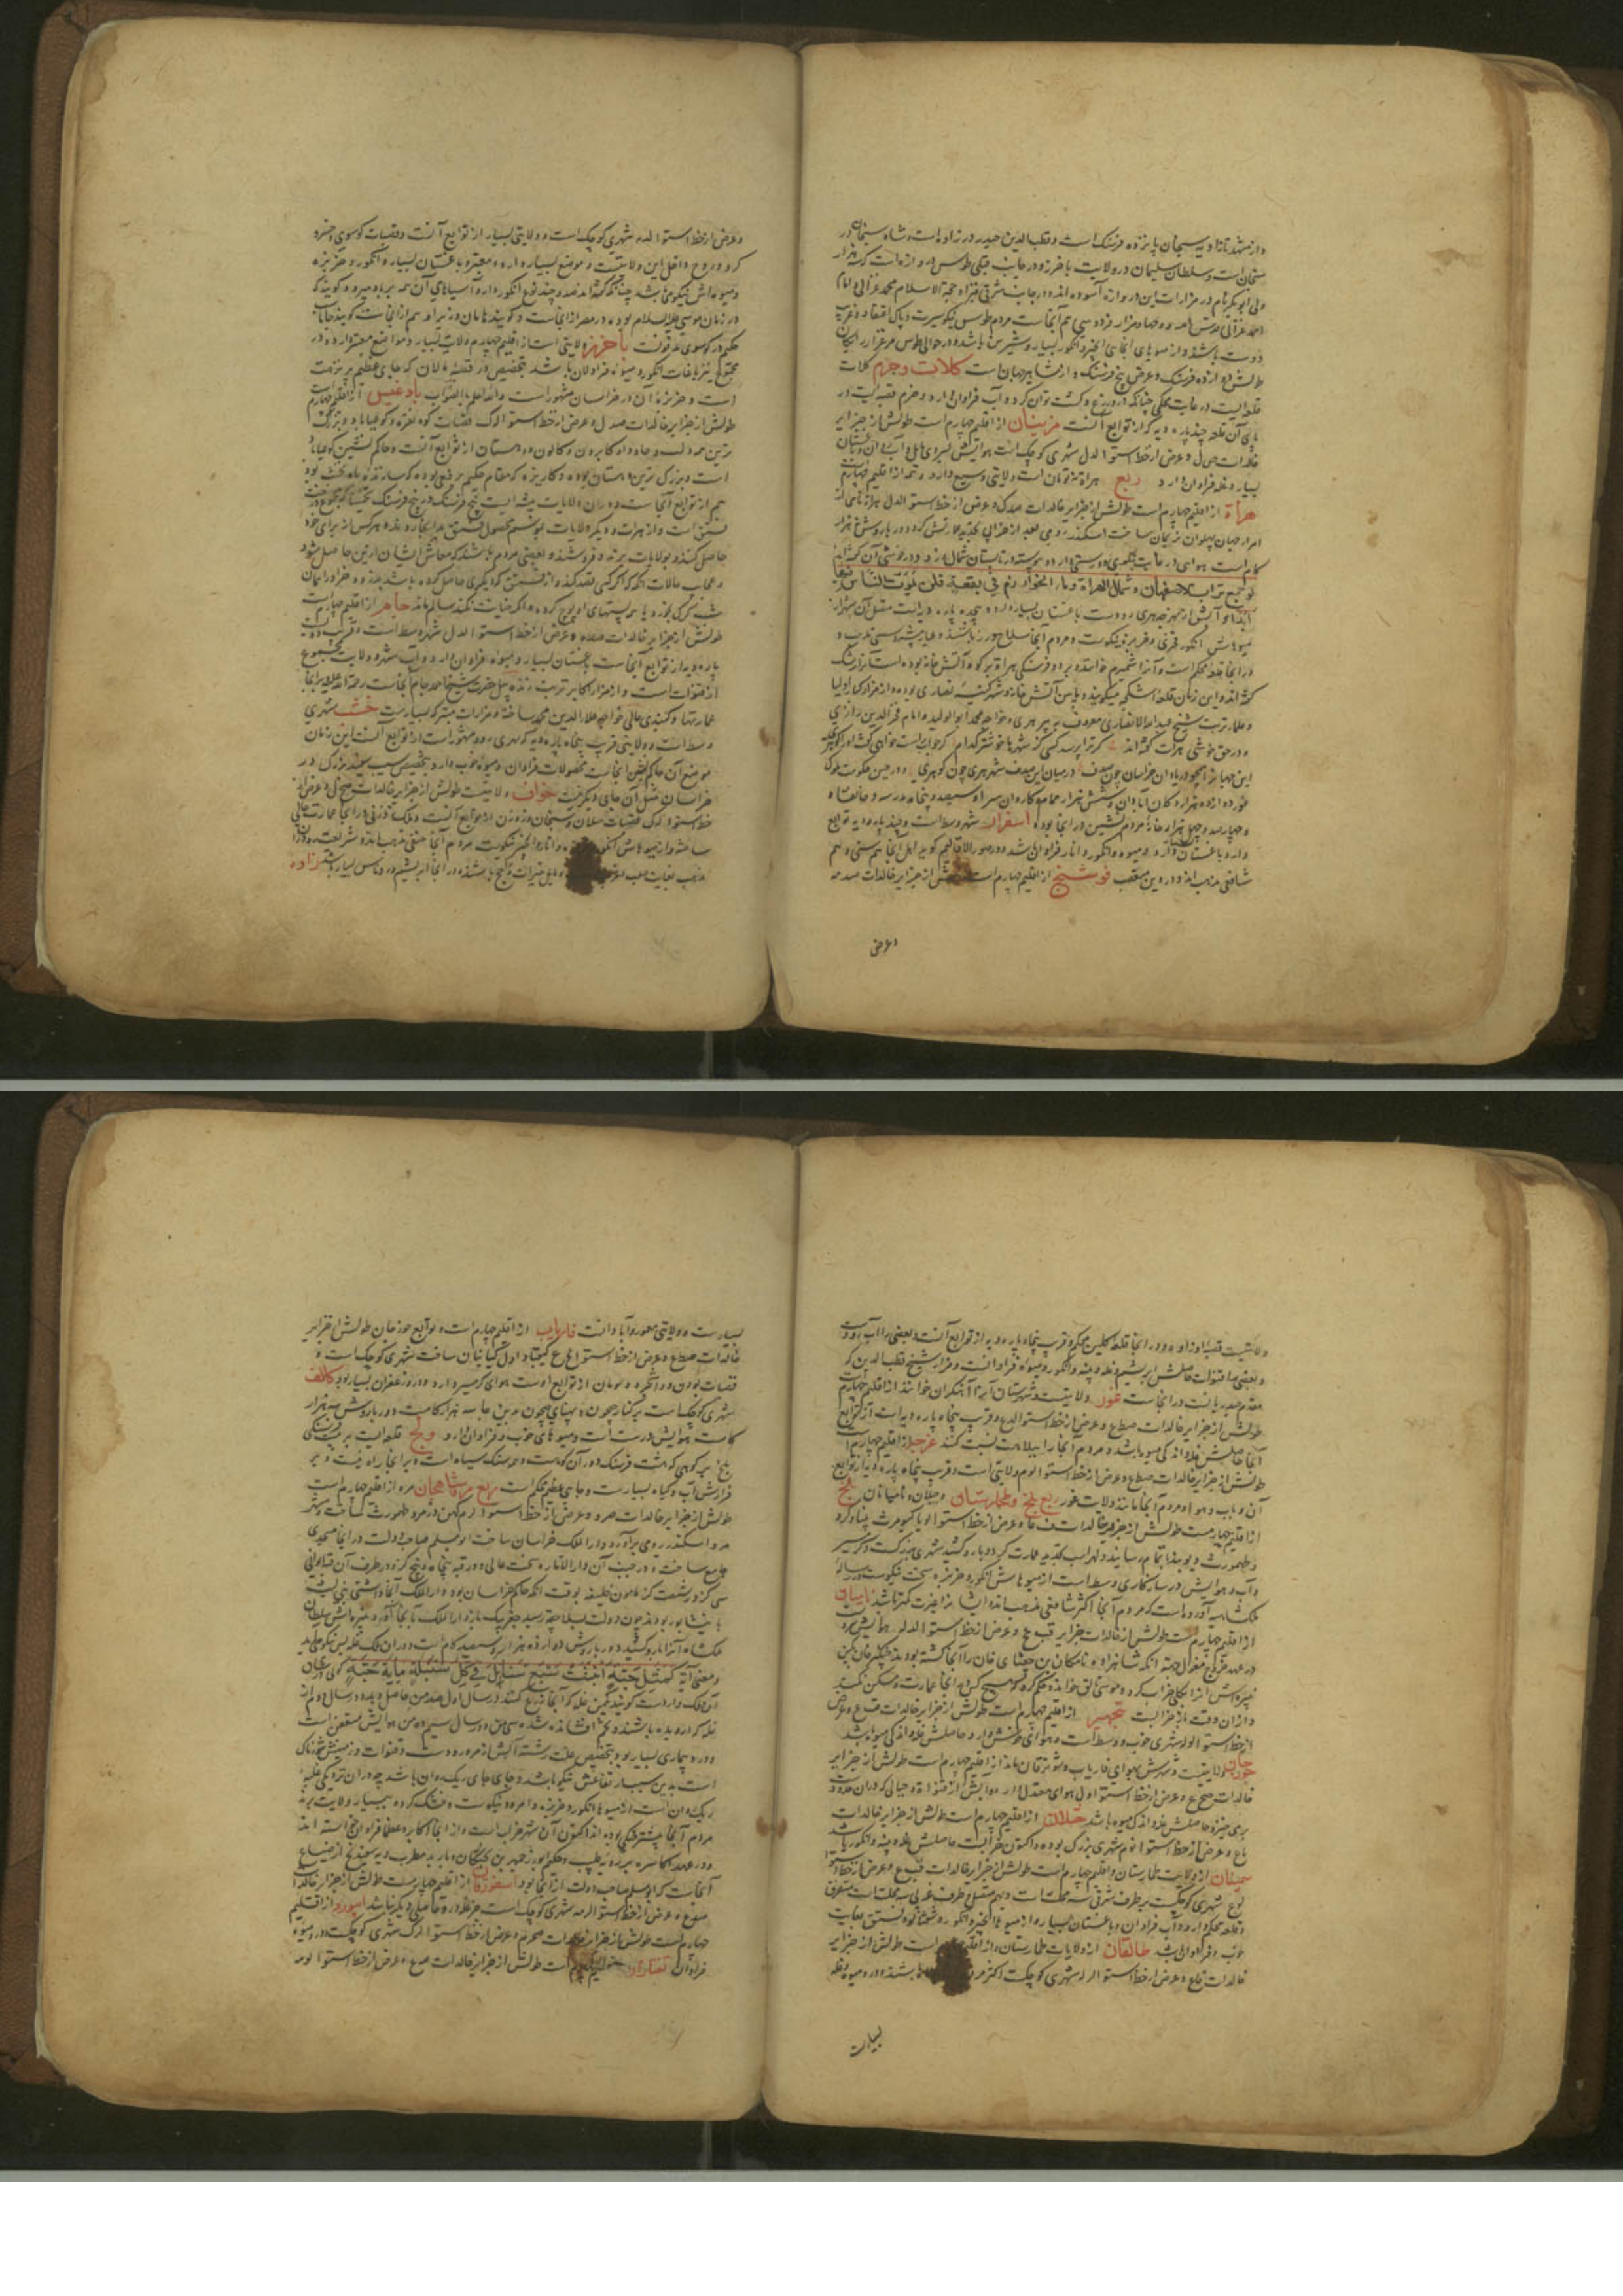 و از مشهد تا زاویه سنجان پانزده فرسنگ است و قطب الدین حیدر در زاوه است و شاه سنجان در
سنجان است و سلطان سلیمان در ولایت باخرز و در جانب قبلی طوس دروازه است که هزار
ولی ابوبکر نام در مزارات این دروازه آسوده اند و در جانب شرقی مزار حجة الاسلام محمد غزالی و امام
احمد غزالی و مزار فردوسی هم آنجاست مردم طوس نیکو سیرت و پاک اعتقاد و غریب
دوست باشند و از میوهای آنجای انجیر و انگور بسیار و شیرین باشد و در حوالی طوس مرغزار رایکان
طولش دوازده فرسنگ و عرض پنج فرسنگ و از مشاهیر جهانست کلات و جرم کلات
قلعه ایست در غایت محکمی چنانکه درو زرع و کشت توان کرد و آب فراوان دارد و جرم قصبه ایست در
پای آن قلعه چند پاره دیه که از توابع آنست مرینان از اقلیم چهارم است طولش از جزایر
خالدات و عرض از خط استوا لدل شهری کوچک است هوایش بسردی مایل و آب روان و باغستان
بسیار و غله فراوان دارد ربع هراة نه تومان است ولایتی وسیع دارد و تمه از اقلیم چهارم
هراة از اقلیم چهارم است طولش از جزایر خالدات صدک و عرض از خط استوا لدل هراة نامی از
امرا جهان پهلوان نریمان ساخت اسکندر رومی بعد از خرابی تجدید عمارتش کرد و دور باروش نه هزار
گام است هوای در غایت نیکوی و درستی دارد و پیوسته در تابستان شمال وزد و در خوشی آن گفته اند
لو جمع تراب الاصفهان و شمال الهراة و ماء الخوارزم فی بقعة قلن یموت الناس فیها
ابدا و آبش از نهرچه هری رود است باغستان بسیار دارد و هجده پاره دیه است متصل آن شهر از
میوهاش انگور فخری و خربزه نیکوست و مردم آنجا سلاح ورز باشند و عیار پیشه و سنی مذهب و
در آنجا قلعه محکم است و آنرا شمیرم خوانند و بر دو فرسنگی هراة بر کوه آتش خانه بوده است آنرا ارشک
گفته اند و این زمان قلعه اشکلجه میگویند و مابین آتش خانه و شهر کنیسه نصاری بوده و از مزار کبار اولیا
و علما تربت شیخ عبد الله الانصاری معروف به پیر هری و خواجه محمد ابو الولید و امام فخر الدین رازی
و در حق خوشی هرات گفته اند گر ترا پرسد کسی کز شهرها خوشتر کدام گر جواب راست خواهی گفت او را گو هری
این جهان را همچو دریا دان خراسان چون صدف در میان این صدف شهر هری چون گوهری و در حین حکومت ملوک
غور دوازده هزار دکان آبادان و شش هزار حمام و کاروان سرا و سیصد و پنجاه و نه مدرسه و خانقاه
و چهار صد و چهل هزار خانه مردم نشین در آنجا بوده اسفزار شهر وسط است و چند پاره دیه توابع
دارد و باغستان دارد و میوه و انگور و انار فراوان باشد و در صور الاقالیم گوید اهل آنجا هم سنی و هم
شافعی مذهب اند و در دین متعصب فوشنج از اقلیم چهارم است طولش از جزایر خالدات صدمه
و عرض
و عرض از خط استوا لده شهری کوچک است و ولایتی بسیار از توابع آنست و قصبات کوسوی و خسرو
کرد و روح داخل این ولایتست و مواضع بسیار دارد و معتبر و باغستان بسیار و انگور و خربزه
و میوهاش نیکوی باشد چنانکه گفته اند صد و چند نوع انگور دارد آسیاهای آن همه بر باد میرود و گویند که
در زمان موسی علیه السلام بوده در مصر از آنجاست و گویند هامان وزیر او هم از آنجاست گویند خانات
حکیم در کوسوی مدفونست باخرز ولایتی است از اقلیم چهارم ولایت بسیار و مواضع معتبر دارد و در
مجموع نیز باغات انگور و میوه فراوان باشد بتخصیص در قصبه مالان که جای عظیم پر نزهت
است و خربزه آن در خراسان مشهور است والله اعلم بالصواب بادغیس از اقلیم چهارم
طولش از جزایر خالدات صدل و عرض از خط استوا لدک قصبات کوه نقره و کوه غناباد و بزرگ
ترین همه دلب و جاد داد و کابرون و کالون و دهستان از توابع آنست و حاکم نشین کوه غناباد
است و بزرگ ترین دهستان بوده و کاریزه که مقام حکیم برقعی بوده که سازنده ماه نخشب بود
هم از توابع آنجاست و در آن ولایت بیشه ایست پنج فرسنگ در پنج فرسنگ تخمینا که مجموع درخت
فستق است و از هرات و دیگر ولایات بموسم محصول فستق بدانجا روند و هر کس از برای خود
حاصل کنند و بولایات برند و فروشند و بعضی مردم باشند که معاش ایشان از این حاصل شود
و عجایب حالات آنکه اگر کسی قصد کند و از فستق که دیگری حاصل کرده باشد بدزدد خر او را همان
شب گرگ بخورد یا همه پستهای او پوچ گردد و اگر خیانت نکند سالم ماند جام از اقلیم چهارم است
طولش از جزایر خالدات صده و عرض از خط استوا لدل شهر وسط است و قریب دویست
پاره دیه از توابع آنجاست باغستان بسیار و میوه فراوان دارد و آب شهر و ولایت مجموع
از قنوات است و از مزار اکابر تربت زنده پیل حضرت شیخ احمد جام آنجاست رحمة الله علیه بر آنجا
عمارتها و گنبدی عالی خواجه علاء الدین محمد ساخته و مزارات متبرک بسیارست خشب شهری
وسط است و ولایتی قریب پنجاه پاره دیه که بهری رود مشهور است از توابع آنست این زمان
موضع آن حاکم نشین آنجاست محصولات فراوان و میوه خوب دارد بتخصیص سیب سجند بزرگ در
خراسان مثل آن جای دیگر نیست خواف ولایتیست طولش از جزایر خالدات صح ک و عرض از
خط استوا لدک قصبات سلامه و سنجان و زوزن از توابع آنست و ملک زوزنی در آنجا عمارت عالی
ساخته و از میوهاش انگور و خربزه و انار و انجیر نیکوست مردم آنجا حنفی مذهب باشند و شریعت ورز و در آن
مذهب بغایت صلب و مایل خیرات و حج باشند و در آنجا ابریشم و روناس بسیار باشد زاوه
ولایتیست قصبه او زاوه و در آنجا قلعه گلین محکم و قریب پنجاه پاره دیه از توابع آنست و بعضی را آب رودست
و بعضی را قنوات حاصلش ابریشم و غله و پنبه و انگور و میوه فراوانست و مزار شیخ قطب الدین که
مقدم حیدریانست در آنجاست غور ولایتیست و شهرستان آنرا آهنگران خوانند از اقلیم چهارم
طولش از جزایر خالدات صط ع و عرض از خط استوا لدع و قریب پنجاه پاره دیه است از توابع
آنجا حاصلش غله و اندکی میوه باشد و مردم آنجا را ببلاهت نسبت کنند غرجه از اقلیم چهارم
طولش از جزایر خالدات صط ع و عرض از خط استوا لوم ولایتی است و قریب پنجاه پاره دیه از توابع
آن و باب و هوا و مردم آنجا مانند ولایت غور ربع بلخ و طخارستان و ختلان و بامیان بلخ
از اقلیم چهارمست طولش از جزایر خالدات ق ما و عرض از خط استوا لو یا کیومرث بنیاد کرد
و طهمورث دیوبند باتمام رسانید و لهراسب تجدید عمارت کرد و بارو کشید شهری بزرگست و گرمسیر
و آب و هوایش در سازگاری وسط است از میوهاش انگور و خربزه سخت نیکوست و در رساله
ملکشاهیه آورده است که مردم آنجا اکثر شافعی مذهب اند و ایشان را غیرت کمتر باشد بامیان
از اقلیم چهارم است طولش از خالدات جزایر قب ع و عرض از خط استوا لدله هوایش سرد
در عهد خروج مغول بجهة آنکه شاهزاده ماتیکان بن جغتای خان را آنجا کشته بودند چنگیز خان بکین
نبیره اش آنرا بکلی خراب کرد و موبالق خواند و حکم کرد که هیچ کس در آنجا عمارت و مسکن نکند
و از آن وقت باز خرابست پنجهیر از اقلیم چهارم است طولش از جزایر خالدات قب ع و عرض
از خط استوا لوله شهری خوب و وسط است و هوای خوش دارد و حاصلش غله و اندکی میوه باشد
جوزجان ولایتیست و شهرش یهودیه فاریاب و شبورقان ماند از اقلیم چهارم است طولش از جزایر
خالدات صح ع و عرض از خط استوا لول هوای معتدل دارد و آبش از قنوات و جبالی که در آن حدود است
برمیخیزد حاصلش غله و اندکی میوه باشد ختلان از اقلیم چهارم است طولش از جزایر خالدات
ق ا ع و عرض از خط استوا لوم شهری بزرگ بوده و اکنون خرابست حاصلش غله و پنبه و انگور باشد
سمنجان از ولایت طخارستان و اقلیم چهارم است طولش از جزایر خالدات قب ع و عرض از خط استوا
لوع شهری کوچکست بر طرف شرقی سه محلتست و بهم متصل و طرف غربی سه محلتست متفرق
و قلعه محکم دارد و آب فراوان و باغستان بسیار و از میوها انجیر و انگور و شفتالو و فستق بغایت
خوب و فراوان باشد طالقان از ولایات طخارستان و از اقلیم چهارم است طولش از جزایر
خالدات ق ا ع و عرض از خط استوا لوله شهری کوچکست اکثر مردم آنجا باشند و در میوه و غله
بسیارست
بسیارست و ولایتی معمور و آبادانست فاریاب از اقلیم چهارم است و توابع جوزجان طولش از جزایر
خالدات صط ع و عرض از خط استوا لوع کیقباد اول کیانیان ساخت شهری کوچک است و
قصبات بودن و دراتجره و سومان از توابع اوست هوای گرمسیر دارد و در و زعفران بسیار بود کالف
شهری کوچک است بر کنار جیحون و پهنای جیحون در بن جا سه هزار گامست و دور باروش سه هزار
گامست هوایش درستست و میوهای خوب و فراوان دارد ولخ قلعه ایست بر بیست فرسنگی
بلخ بر کوهی که هشت فرسنگ دور آن کوهست و همه سنگ سیاه است و بر آنجا راه نیست و بر
فرازش آب و گیاه بسیارست و جای عظیم محکم است ربع مرو شاهجان مرو از اقلیم چهارم است
طولش از جزایر خالدات صرو و عرض از خط استوا لزم کهن دز مرو طهمورث ساخت و شهر
مرو اسکندر رومی برآورد و دار الملک خراسان ساخت ابو مسلم صاحب دولت در آنجا مسجدی
جامع ساخته و در جنب آن دار الاماره سخت عالی و در قبه پنجاه و پنج گز و در هر طرف آن قبه ایوانی
سی گز در شصت گز مامون خلیفه بوقت آنکه حاکم خراسان بود دار الملک آنجا داشتی بنی لیث
با نیشابور بردند چون دولت بسلاجقه رسید جغر بیک باز دار الملک با آنجا آورد نبیره اش سلطان
ملکشاه آنرا بارو کشید دور باروش دوازده هزار و سیصد گام است و در آن ملک غله بس نیکو می آید
و معنی آیه کمثل حبة انبتت سبع سنابل فی کل سنبلة مایة حبة گوی در شان
آن ملک وارد است گویند یک من غله که آنجا زرع کنند در سال اول صد من حاصل دهد و در سال دوم از
غله که از رو دیده باشد و نو افشانده شده سی من و در سال سیم ده من هوایش متعفن است
و در و بیماری بسیار بود بتخصیص علت رشته آبش از مرو رودست و قنوات و زمینش شورناک
است بدین سبب ارتفاعش نیکو باشد و جای جای ریگ روان باشد چه در آن نزدیکی غلبه
ریگ روانست از میوها انگور و خربزه و امرود نیکوست و خشک کرده ببسیار ولایت برند
مردم آنجا بیشتر جنگی بوده اند اکنون آن شهر خرابست و از آنجا اکابر و عظما فراوان خاسته اند
و در عهد اکاسره برزویه طبیب و حکیم ابوزرجمهر بن بختگان و باربد مطرب و دیه سیجند نج از ضیاع
آنجاست که ابو مسلم صاحب دولت از آنجا بود اسفورقان از اقلیم چهارمست طولش از جزایر خالدات
صط ع و عرض از خط استوا لو مه شهری کوچک است جز غله درو حاصلی دیگر نباشد ابیورد از اقلیم
چهارم است طولش از جزایر خالدات صح م و عرض از خط استوا لزک شهری کوچکست و درو میوه
فراوان تفتازان از اقلیم چهارم است طولش از جزایر خالدات صح ع و عرض از خط استوا لومه